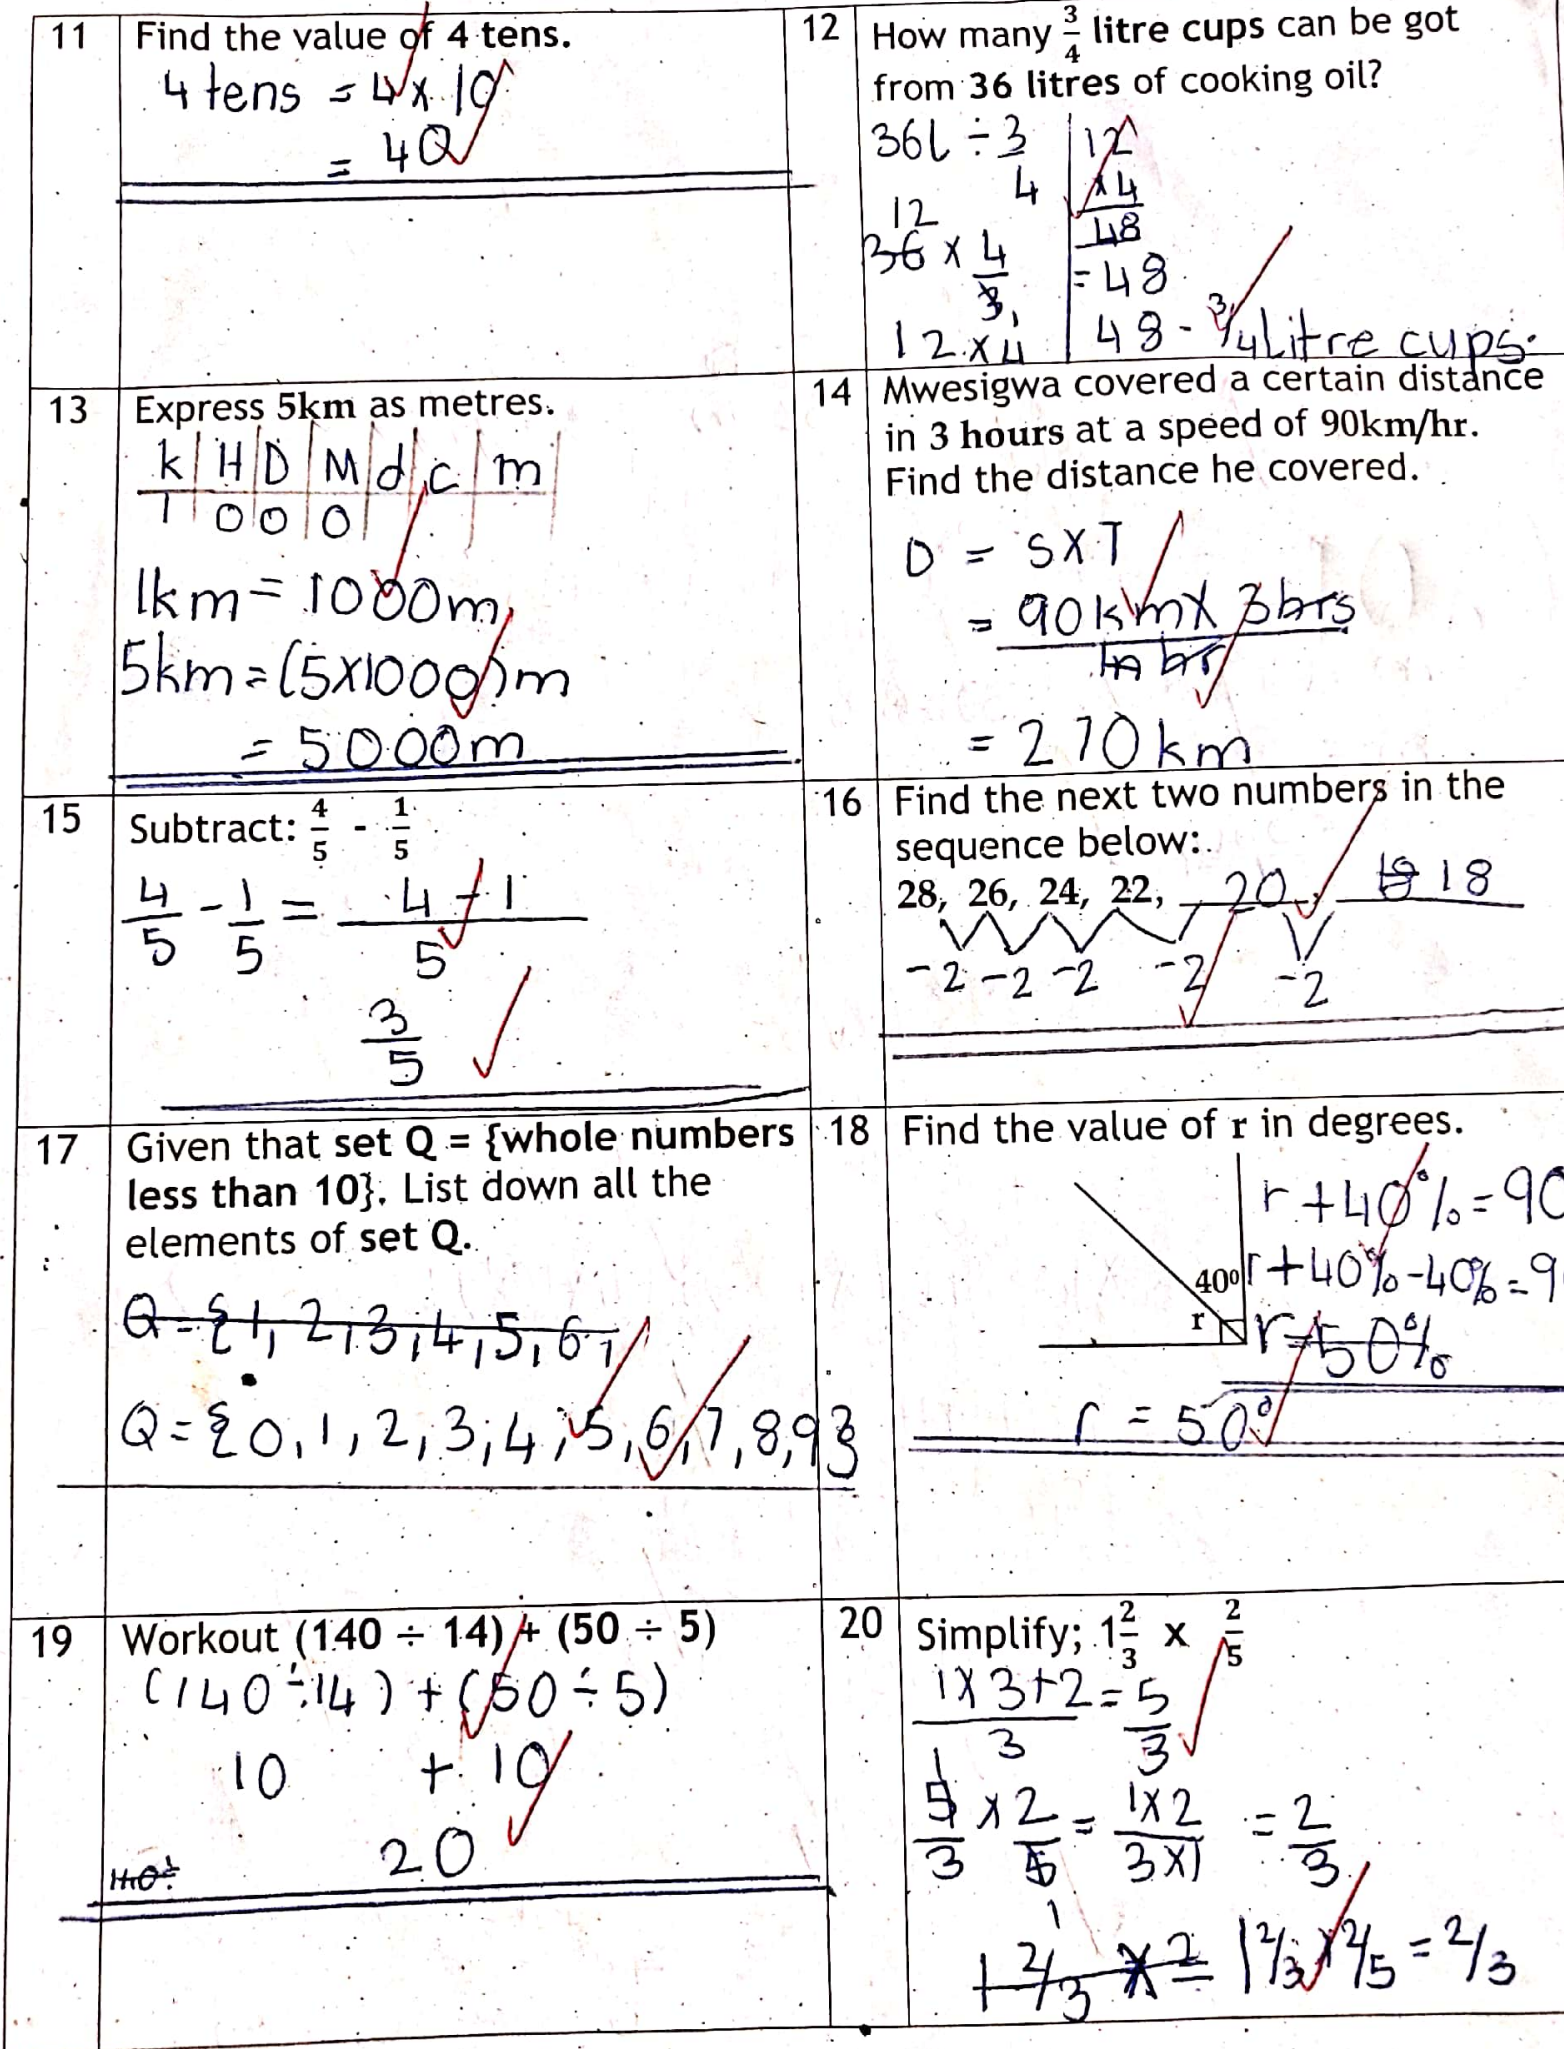 11 Find the value of 4 tens.
4 tens = 4 x 10
= 40
12 How many 3/4 litre cups can be got
from 36 litres of cooking oil?
36l ÷ 3/4
12
36 x 4/3
1
12 x 4
12
x4
48
= 48
48 - 3/4 Litre cups.
13 Express 5km as metres.
k H D M d c m
1 0 0 0
1km = 1000m
5km = (5x1000)m
= 5000m
14 Mwesigwa covered a certain distance
in 3 hours at a speed of 90km/hr.
Find the distance he covered.
D = S X T
= 90km x 3hrs
hr
= 270km
15 Subtract: 4/5 - 1/5
4/5 - 1/5 = 4 - 1
5
3/5
16 Find the next two numbers in the
sequence below:
28, 26, 24, 22, 20, 18
-2 -2 -2 -2 -2
17 Given that set Q = {whole numbers
less than 10}. List down all the
elements of set Q.
Q = {1, 2, 3, 4, 5, 6,
Q = {0, 1, 2, 3, 4, 5, 6, 7, 8, 9}
18 Find the value of r in degrees.
40º
r
r + 40% = 90
r + 40% - 40% = 9
r = 50%
r = 50°
19 Workout (140 ÷ 14) + (50 ÷ 5)
(140 ÷ 14) + (50 ÷ 5)
10 + 10
20
20 Simplify; 1 2/3 x 2/5
1 x 3 + 2 = 5
3 3
1
5/3 x 2/5 = 1x2/3x1 = 2/3
1
1 2/3 x 2 = 1 2/3 x 2/5 = 2/3